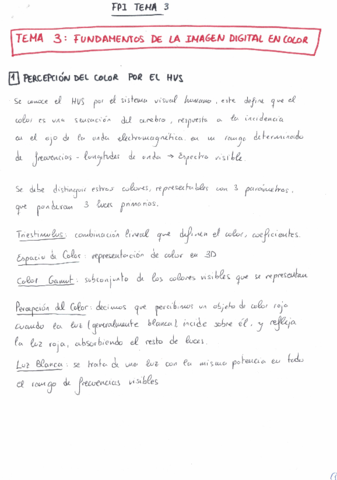 FPI TEMA 3
TEMA 3: FUNDAMENTOS DE LA IMAGEN DIGITAL EN COLOR
1 PERCEPCIÓN DEL COLOR POR EL HVS
Se conoce el HVS por el sistema visual humano, este define que el
color es una sensación del cerebro, respuesta a la incidencia
en el ojo de la onda electromagnética en un rango determinado
de frecuencias - longitudes de onda → Espectro visible.
Se debe distinguir estros colores, representables con 3 parámetros,
que ponderan 3 luces primarias.
Triestímulus: combinación lineal que definen el color, coeficientes.
Espacio de Color: representación de color en 3D
Color Gamut: subconjunto de los colores visibles que se representan
Percepción del Color: decimos que percibimos un objeto de color rojo
cuando la luz (generalmente blanca) incide sobre él, y refleja
la luz roja, absorbiendo el resto de luces.
Luz Blanca: se trata de una luz con la misma potencia en todo
el rango de frecuencias visibles